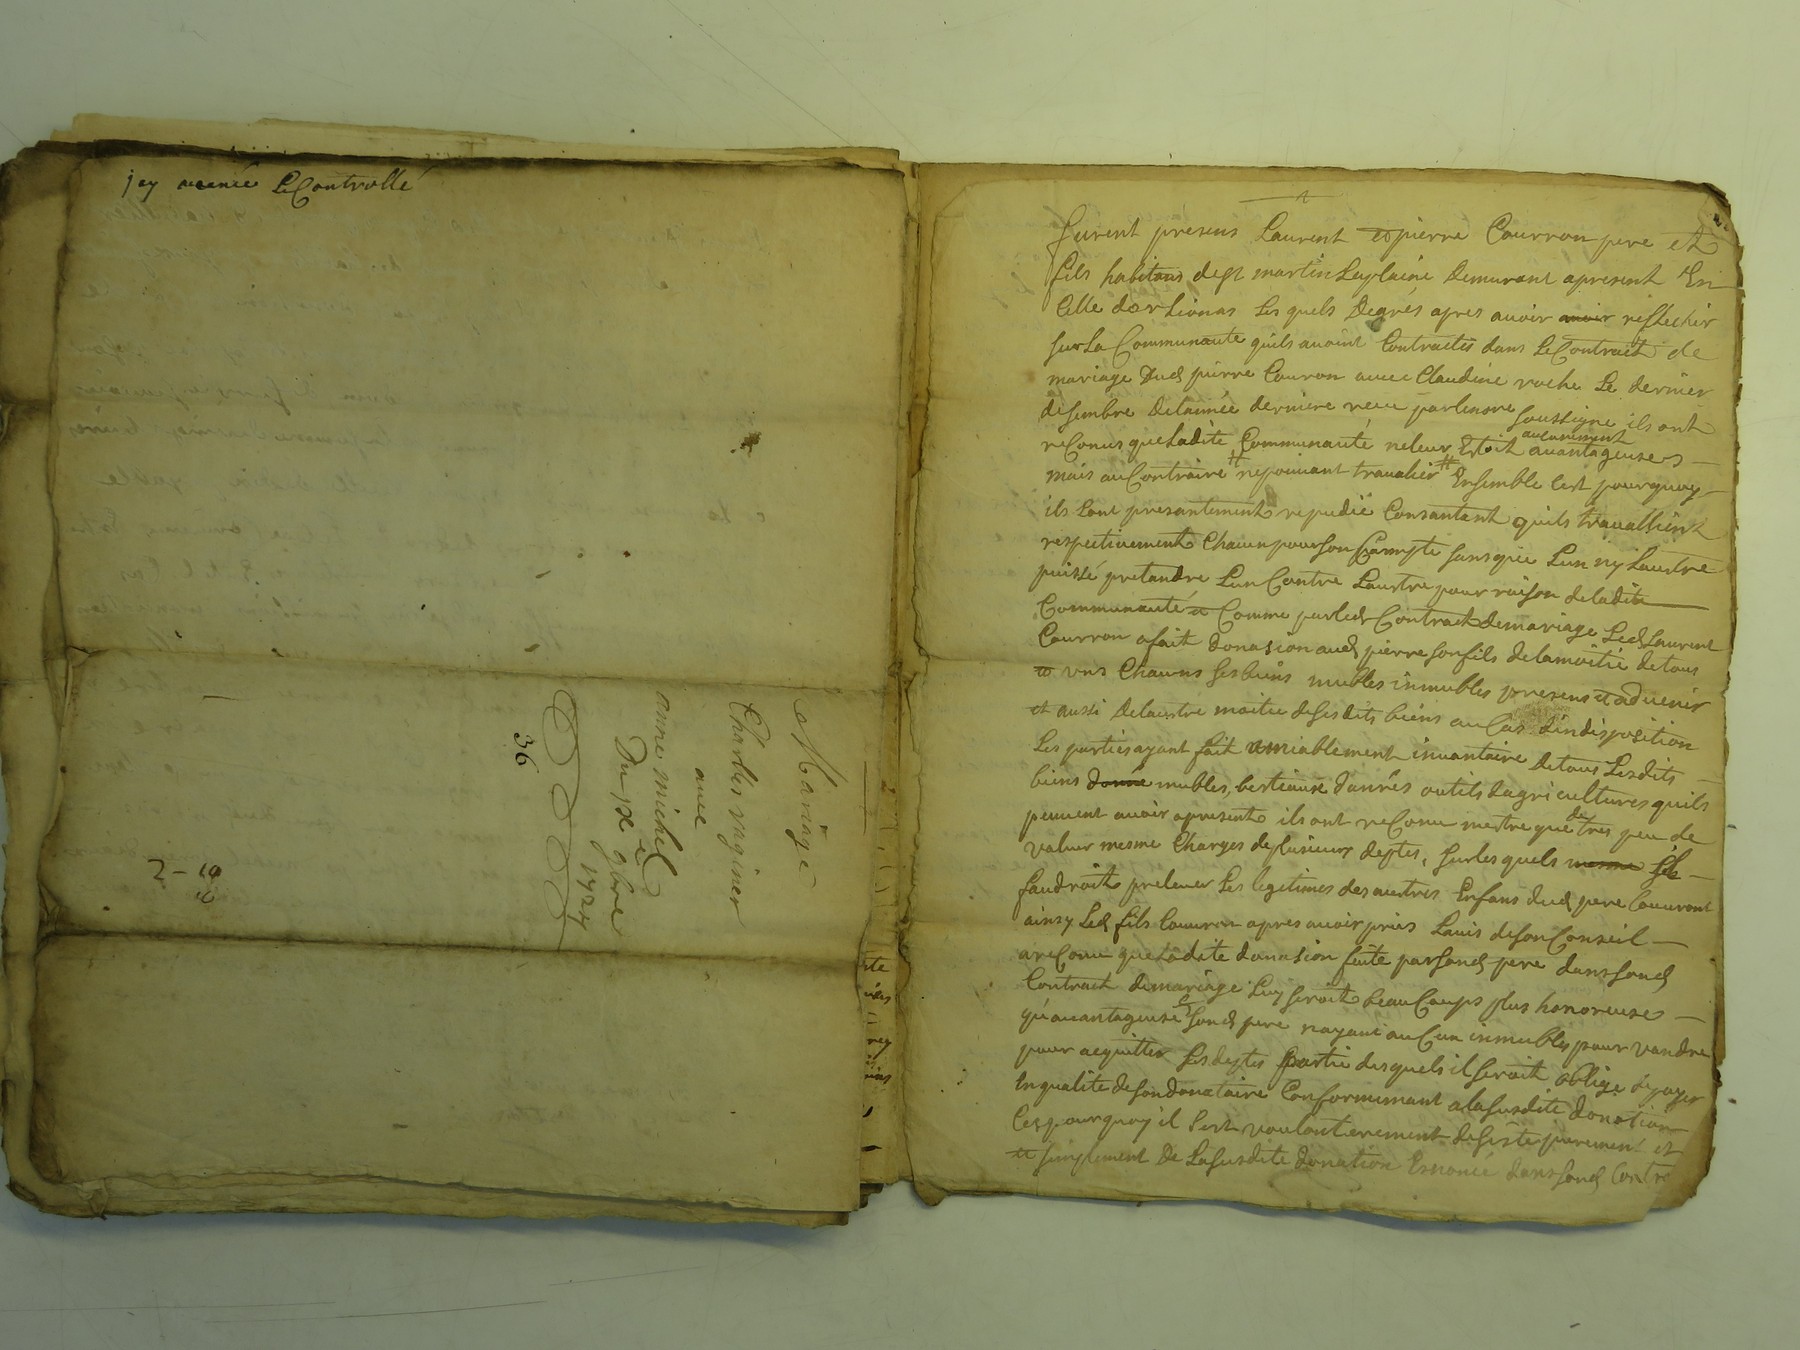 jay receu Le Controlle
Mariage
Charles vaginer
avec
anne michel
Du 13e 9bre
1724
36
2 - 10
furent presens Laurent et pierre Courron pere et
fils habitans de st martin Laplaine Demurant apresent En
Celle dorlienas Les quels Degrés apres avoir avoir reflechir
sur La Communaute quils avoint Contractés dans Le Contract de
mariage Dud pierre Couron avec Claudine roche Le dernier
desembre De lannée derniere receu par lenore soussigne ils ont
reConus que Ladite Communauté ne leur Estoit aucunement avantageuse
mais au Contraire ne pouvant travalier Ensemble Cest pourquoy
ils Lont presantement repudié Consantant quils travallient
respectivement Chacun pour son Compte sans que Lun ny Lautre
puissé pretandre Lun Contre Lautre pour raison de ladite
Communauté et Comme par led Contract de mariage Led Laurent
Courron a fait donasion aud pierre son fils de la moitié de tous
et uns Chacuns ses biens mubles inmubles presens et advenir
et aussi De lautre moitie de ses dits biens au Cas dindisposition
Les parties ayant fait amiablement invantaire De tous Lesdits
biens donné mubles, bestiause danrés outils dagricultures quils
peuvent avoir apresent ils ont reConu nestre que de tres peu de
valuer mesme Charges de plusieurs deptes, sur les quels mesme sil
faudroit prelever Les legitimes des autres Enfans dud pere Couuront
ainsy Led fils Couuron apres avoir pries Lavis de son Conseil
a reConu que Ladite donasion faite par sond pere dans sond
Contract de mariage Luy seroit beauCoups plus honoreuse
qu'avantageuse et sond pere nayant auCun inmubles pour vandre
pour acquitter Ses deptes partie desquels il seroit obligé de payer
En qualite de son donataire Conformemant a la susdite donation
Cest pourquoy il sest voulonterement desisté purement et
et simplement De La susdite donation Ennoncé dans sond Contra